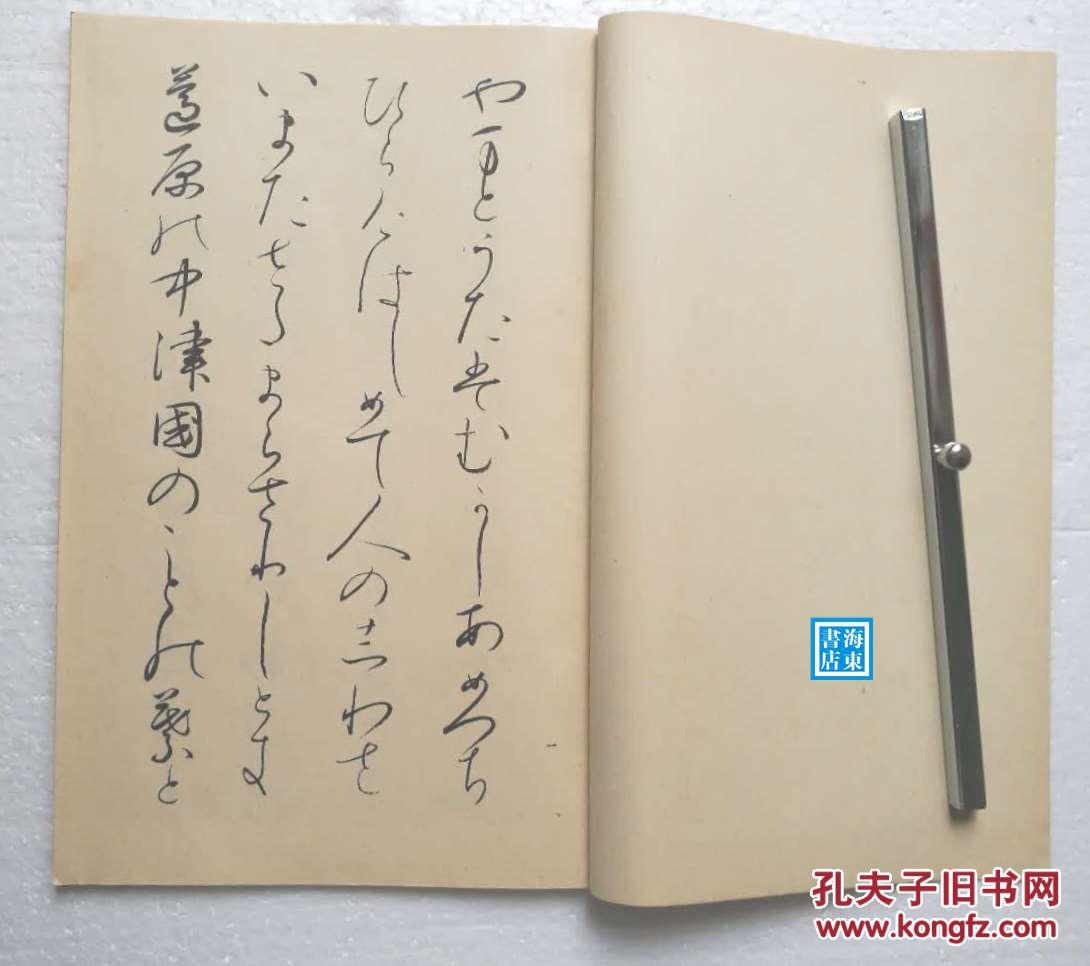 やまとうたはむかしあめつち
ひらけはしめて人のしわさ
いまたさたまらさりしとき
葦原の中津國のことの葉と
海東
書店
孔夫子旧书网
www.kongfz.com